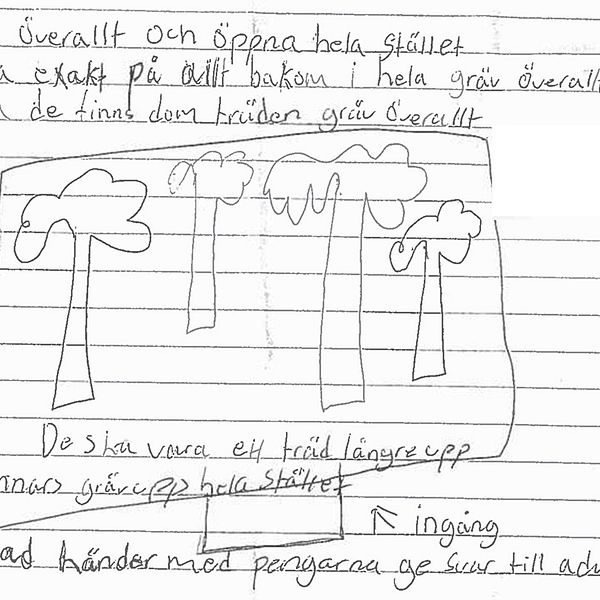 överallt och öppna hela stället
a exakt på allt bakom i hela gräv överallt
de finns dom träden gräv överallt
De ska vara ett träd längre upp
nnars gräv upp hela stället
ingång
ad händer med pengarna ge svar till adv